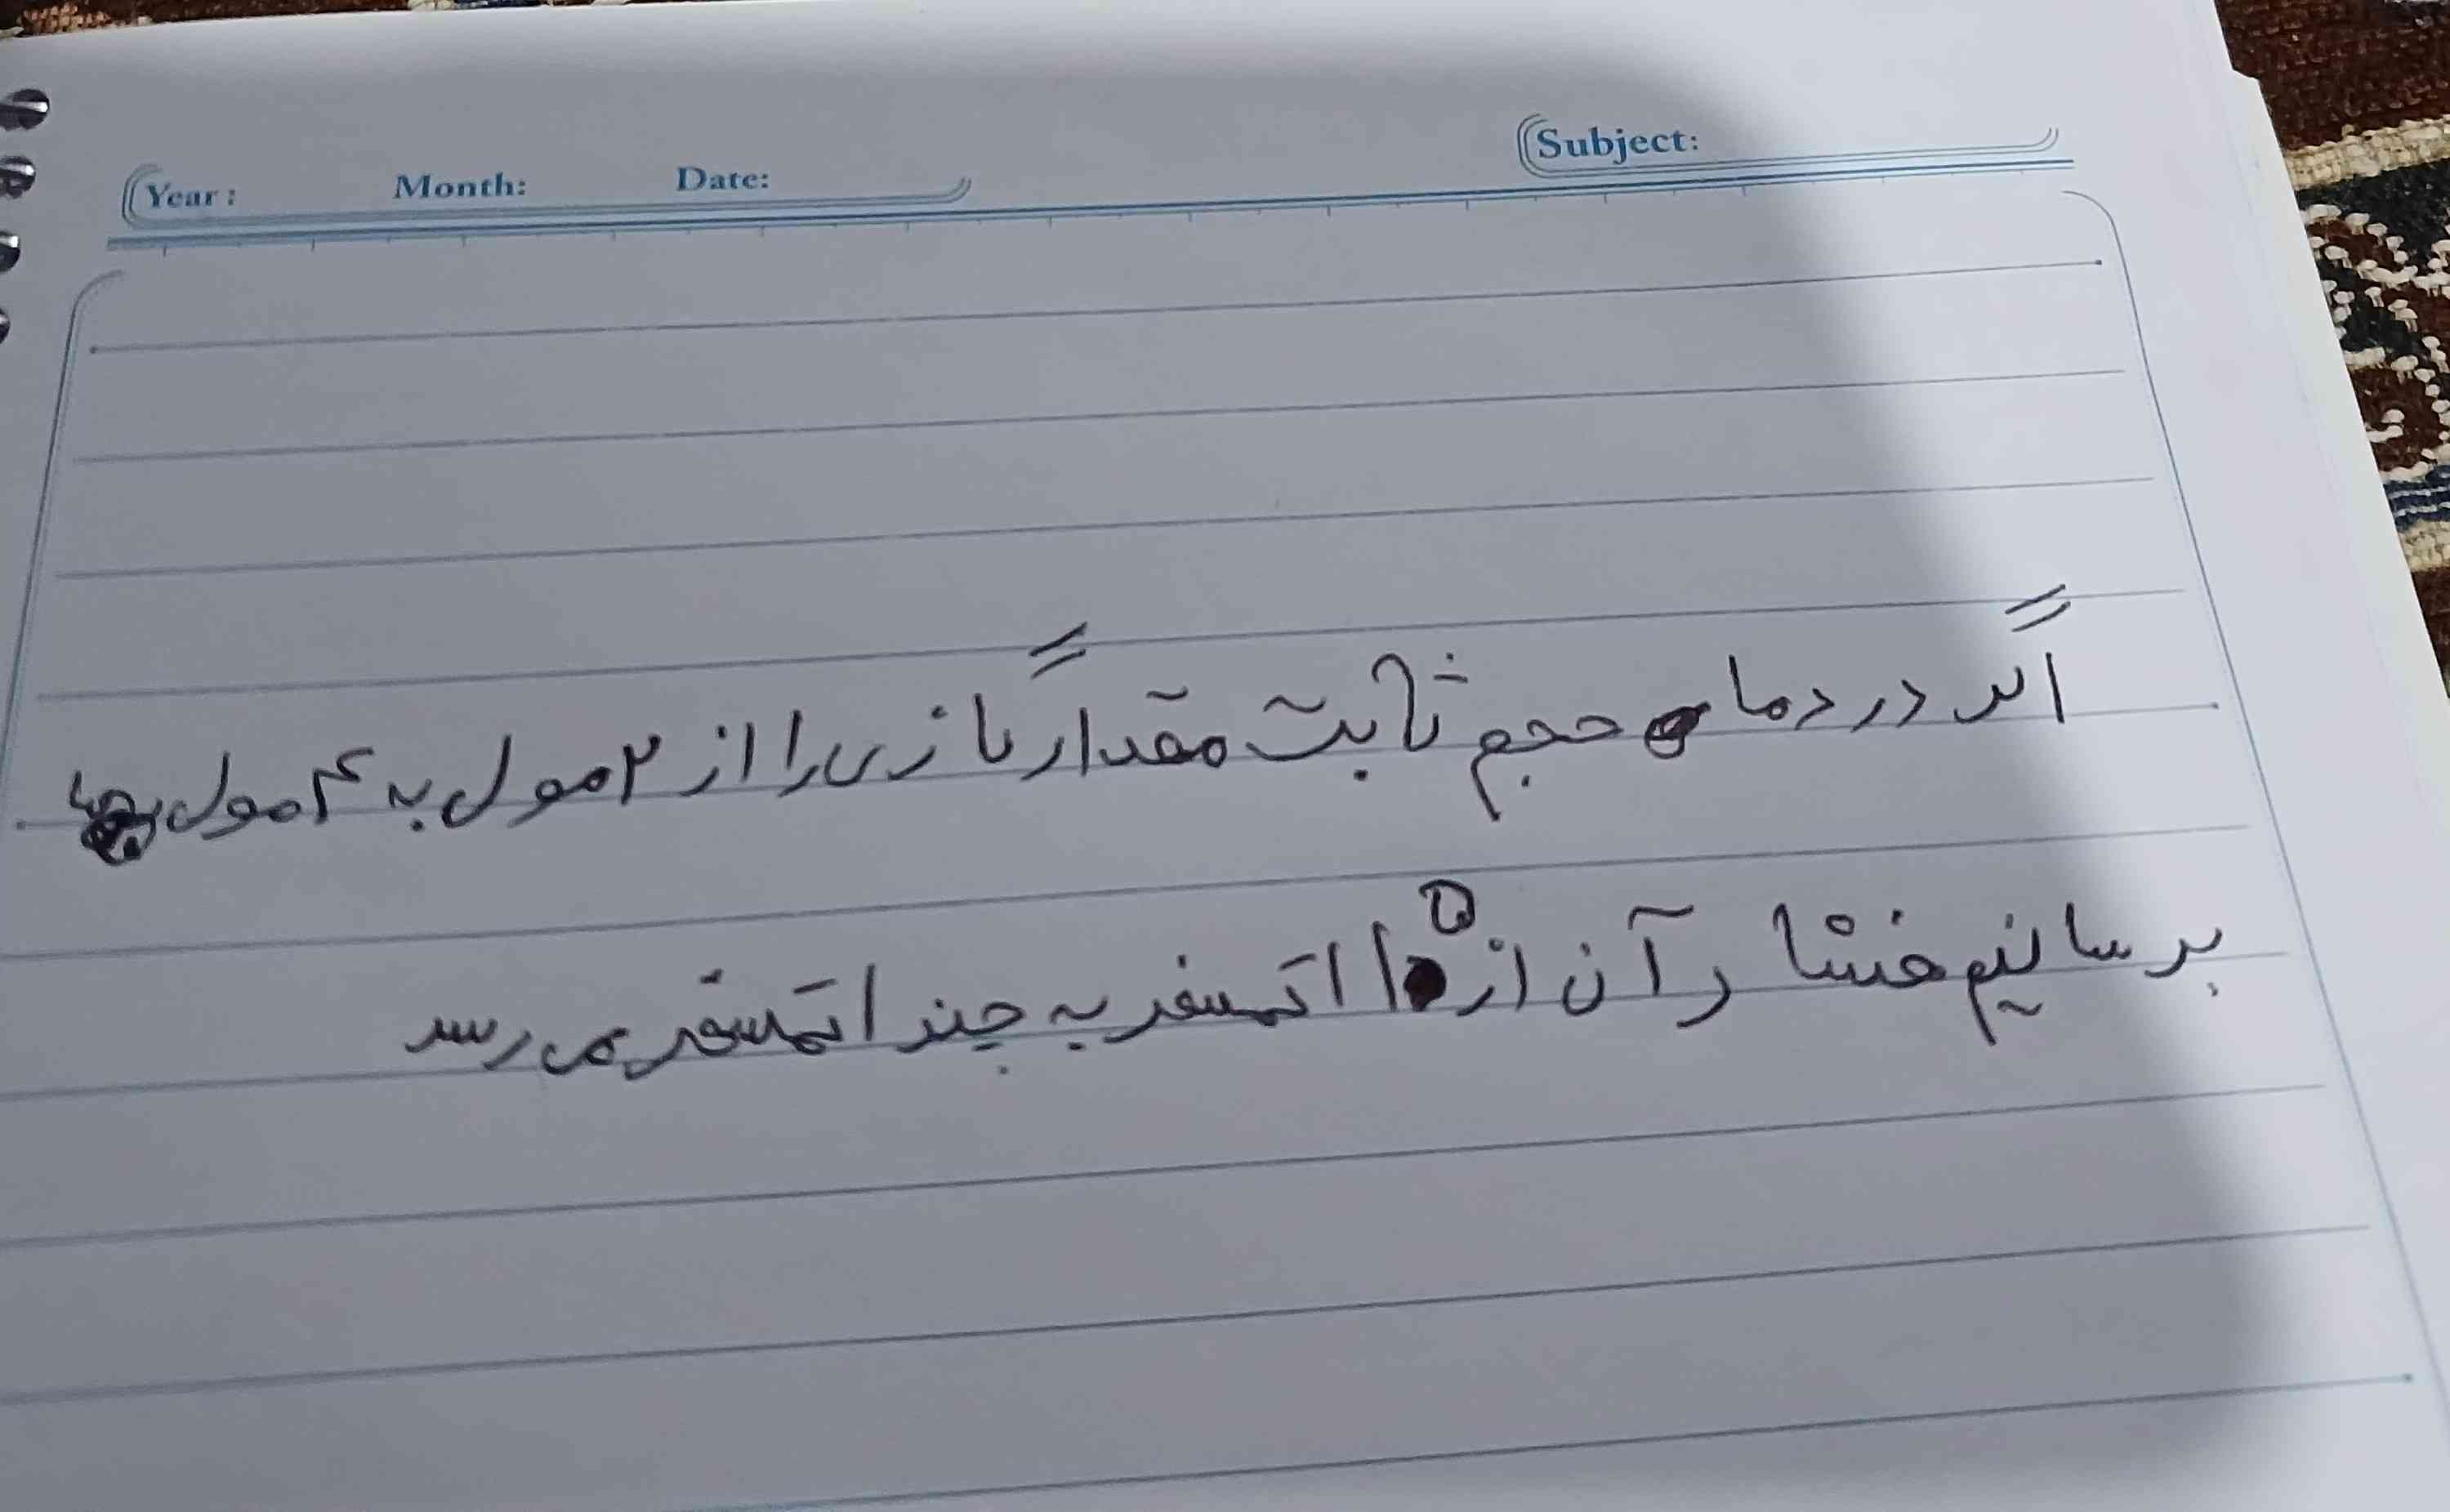 Year: Month: Date: Subject:
اگر در دمای حجم ثابت مقدار گازی را از ۲ مول به ۴ مول
برسانیم فشار آن از اتمسفر به چند اتمسفر می رسد